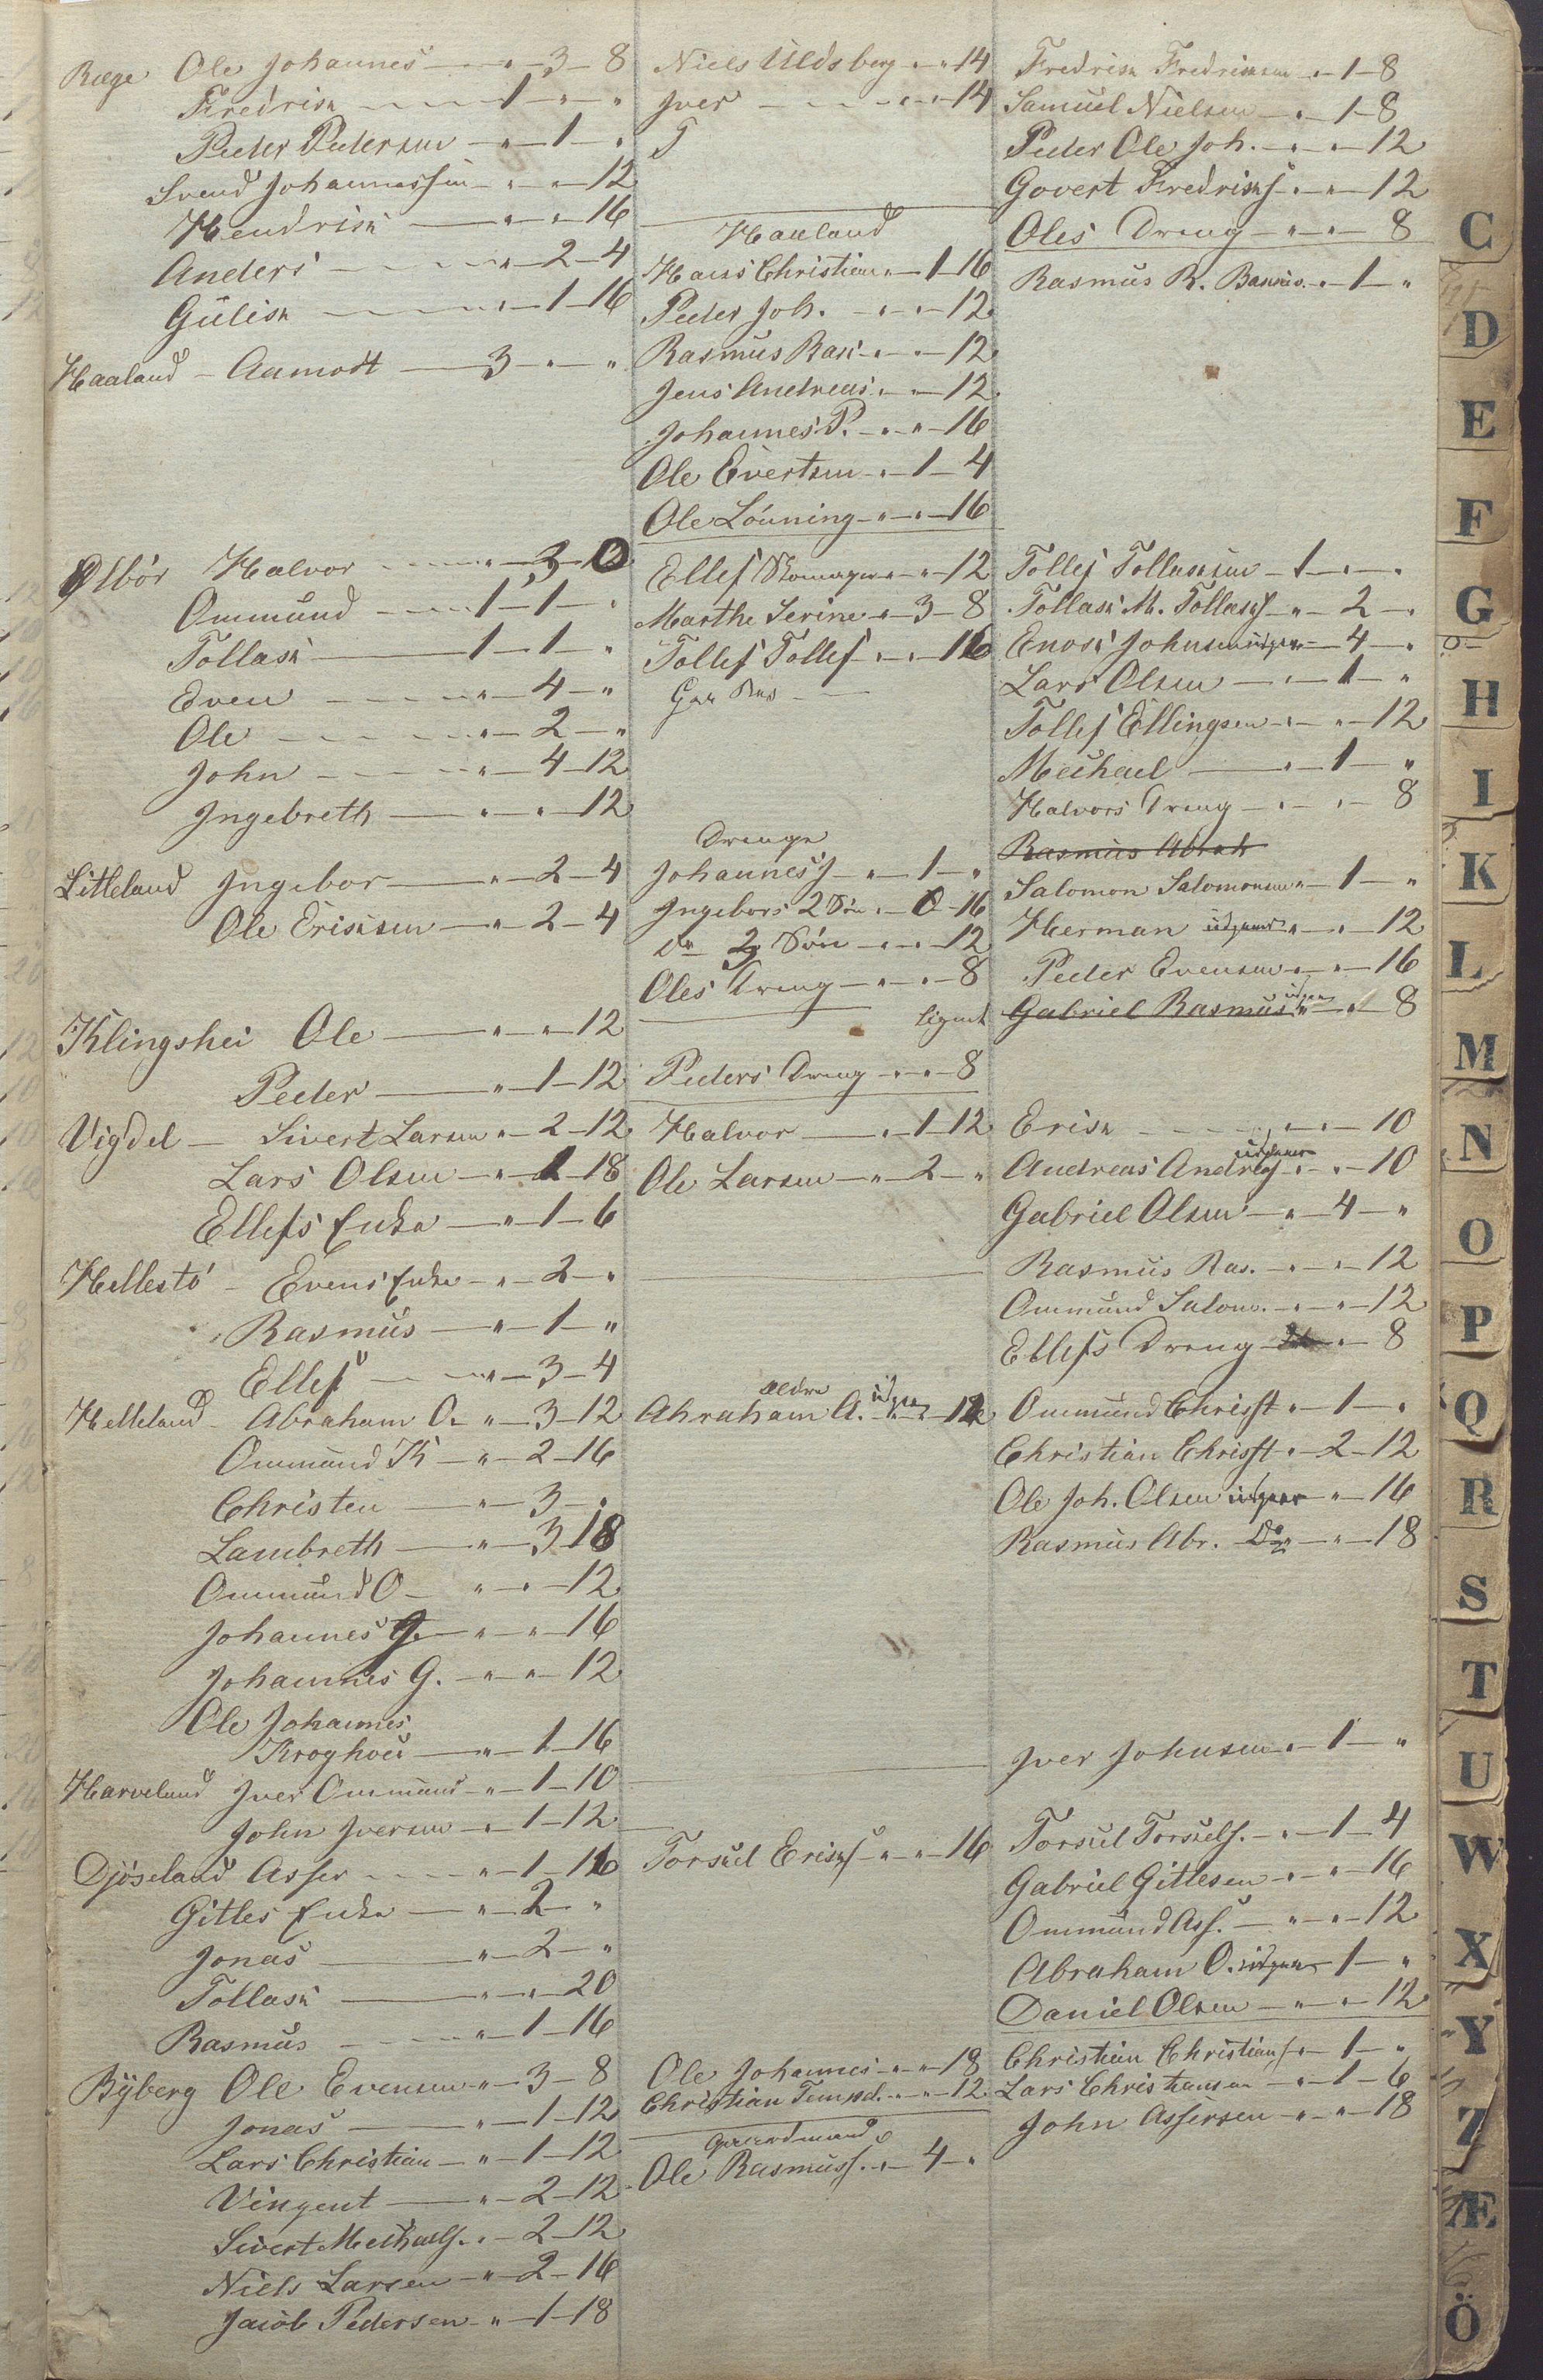 Ræge Ole Johannes — " — 3 — 8
Fredrisk — 1 — " — "
Peder Pedersen — " — 1 — "
Svend Johannessen — " — " — 12
Hendrich — " — " — 16
Anders — " — 2 — 4
Gulich — " — 1 — 16
Haaland — Aamodt — 3 — " — "
Ølbör Halvor — " — 3
Ommund — 1 — 1 — "
Tollack — 1 — 1 — "
Even — " — 4 — "
Ole — " — 2 — "
John — " — 4 — 12
Ingebreth — " — " — 12
Litleland Ingebor — " — 2 — 4
Ole Ericksen — " — 2 — 4
Klingshei Ole — " — " — 12
Peder — " — 1 — 12
Vigdel — Sivert Larsen " — 2 — 12
Lars Olsen — " — 1 — 18
Ellefs Enke — " — 1 — 6
Hellestö — Evens Enke — " — 2 — "
Rasmus — " — 1 — "
Ellef — " — 3 — 4
Helleland — Abraham O. " — 3 — 12
Ommund K — " — 2 — 16
Christen — " — 3 — "
Lambreth — " — 3 — 18
Ommund O — " — " — 12
Johannes J. — " — " — 16
Johannes G. — " — " — 12
Ole Johannes
Kroghou — " — 1 — 16
Harveland Iver Ommund — " — 1 — 10
John Iversen — " — 1 — 12
Djöseland Asser — " — 1 — 16
Gitles Enke — " — 2 — "
Jonas — " — 2 — "
Tollack — " — " — 20
Rasmus — " — 1 — 16
Byberg Ole Evensen — " — 3 — 8
Jonas — " — 1 — 12
Lars Christian — " — 1 — 12
Vingent — " — 2 — 12
Sivert Mechaels. " — 2 — 12
Niels Larsen — " — 2 — 16
Jacob Pedersen " — 1 — 18
Niels Uldsberg " — " 14
Iver — " — " — 14
Haaland
Hans Christian " — 1 — 16
Peder Joh. — " — " — 12
Rasmus Ras. " — " — 12
Jens Andreas " — " — 12
Johannes P. — " — " — 16
Ole Evertsen — " — 1 — 4
Ole Lönning — " — " — 16
Ellef Skomager " — " — 12
Marthe Serine " — 3 — 8
Tollef Tollef " — " — 16
Drenge
Johannes J — " — 1 — "
Ingebors 2 Sön " — 0 — 16
Do 3 Sön — " — " — 12
Oles Dreng — " — " — 8
Peders Dreng — " — " — 8
Halvor — " — 1 — 12
Ole Larsen — " — 2 — "
ældre
Abraham A. udgaar " — " — 12
Torkel Ericks " — " — 16
Ole Johannes — " — " 18
Christian Tunsel. " — " — 12
Gaardmand
Ole Rasmuss. " — 4 — "
Fredrick Fredricksen " — 1 — 8
Samuel Nielsen — " — 1 — 8
Peder Ole Joh. — " — " — 12
Govert Fredricks " — " — 12
Oles Dreng — " — " — 8
Rasmus R. " — 1 — "
Tollef Tollacksen — 1 — " — "
Tollack M. Tollacks — " — 2 — "
Enock Johnsen udgaar — 4 — "
Lars Olsen — " — 1 — "
Tollef Ellingsen " — " — 12
Mechael — " — 1 — "
Halvors Dreng — " — " — 8
Rasmus Abrah
Salomon Salomonsen " — 1 — "
Herman udgaar " — " — 12
Peder Evensen " — " — 16
Gabriel Rasmus udgaar " — " — 8
Erick — " — " — 10
Andreas Andreas udgaar " — " — 10
Gabriel Olsen — " — 4 — "
Rasmus Ras. — " — " — 12
Ommund Salom. — " — " — 12
Ellefs Dreng — " — 8
Ommund Christ " — 1 — "
Christian Christ " — 2 — 12
Ole Joh. Olsen udgaar " — 16
Rasmus Abr. Do — " — 18
Iver Johnsen " — 1 — "
Torkel Torkels. — " — 1 — 4
Gabriel Gitlesen — " — " — 16
Ommund Ass. — " — " — 12
Abraham O. udgaar — 1 — "
Daniel Olsen — " — " — 12
Christian Christians " — 1 — "
Lars Christiansen — " — 1 — 6
John Assersen — " — " — 18
C
D
E
F
G
H
I
K
L
M
N
O
P
Q
R
S
T
U
W
X
Y
Z
Æ
Ö